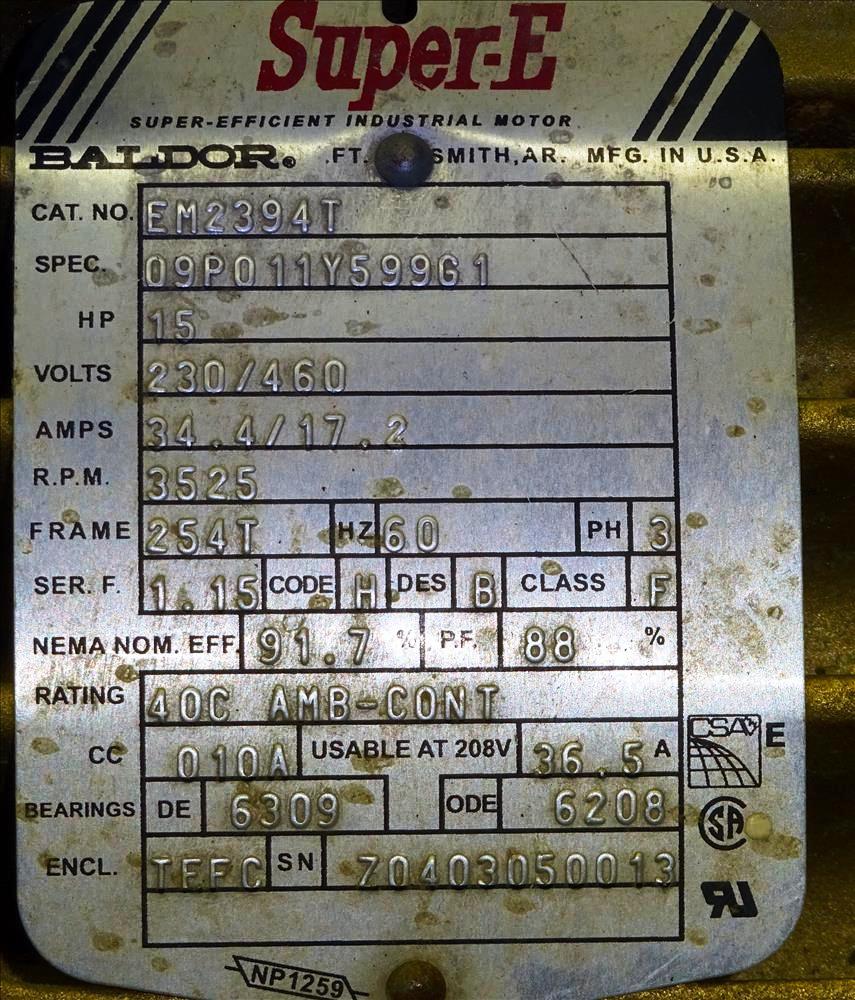 Super-E
SUPER-EFFICIENT INDUSTRIAL MOTOR
BALDOR® FT. SMITH, AR. MFG. IN U.S.A.
CAT. NO. EM2394T
SPEC. 09P011Y599G1
HP 15
VOLTS 230/460
AMPS 34.4/17.2
R.P.M. 3525
FRAME 254T HZ 60 PH 3
SER. F. 1.15 CODE H DES B CLASS F
NEMA NOM. EFF. 91.7 % P.F. 88 %
RATING 40C AMB-CONT
CC 010A USABLE AT 208V 36.5 A
CSA E
BEARINGS DE 6309 ODE 6208
SA
ENCL. TEFC SN Z0403050013
RU
NP1259